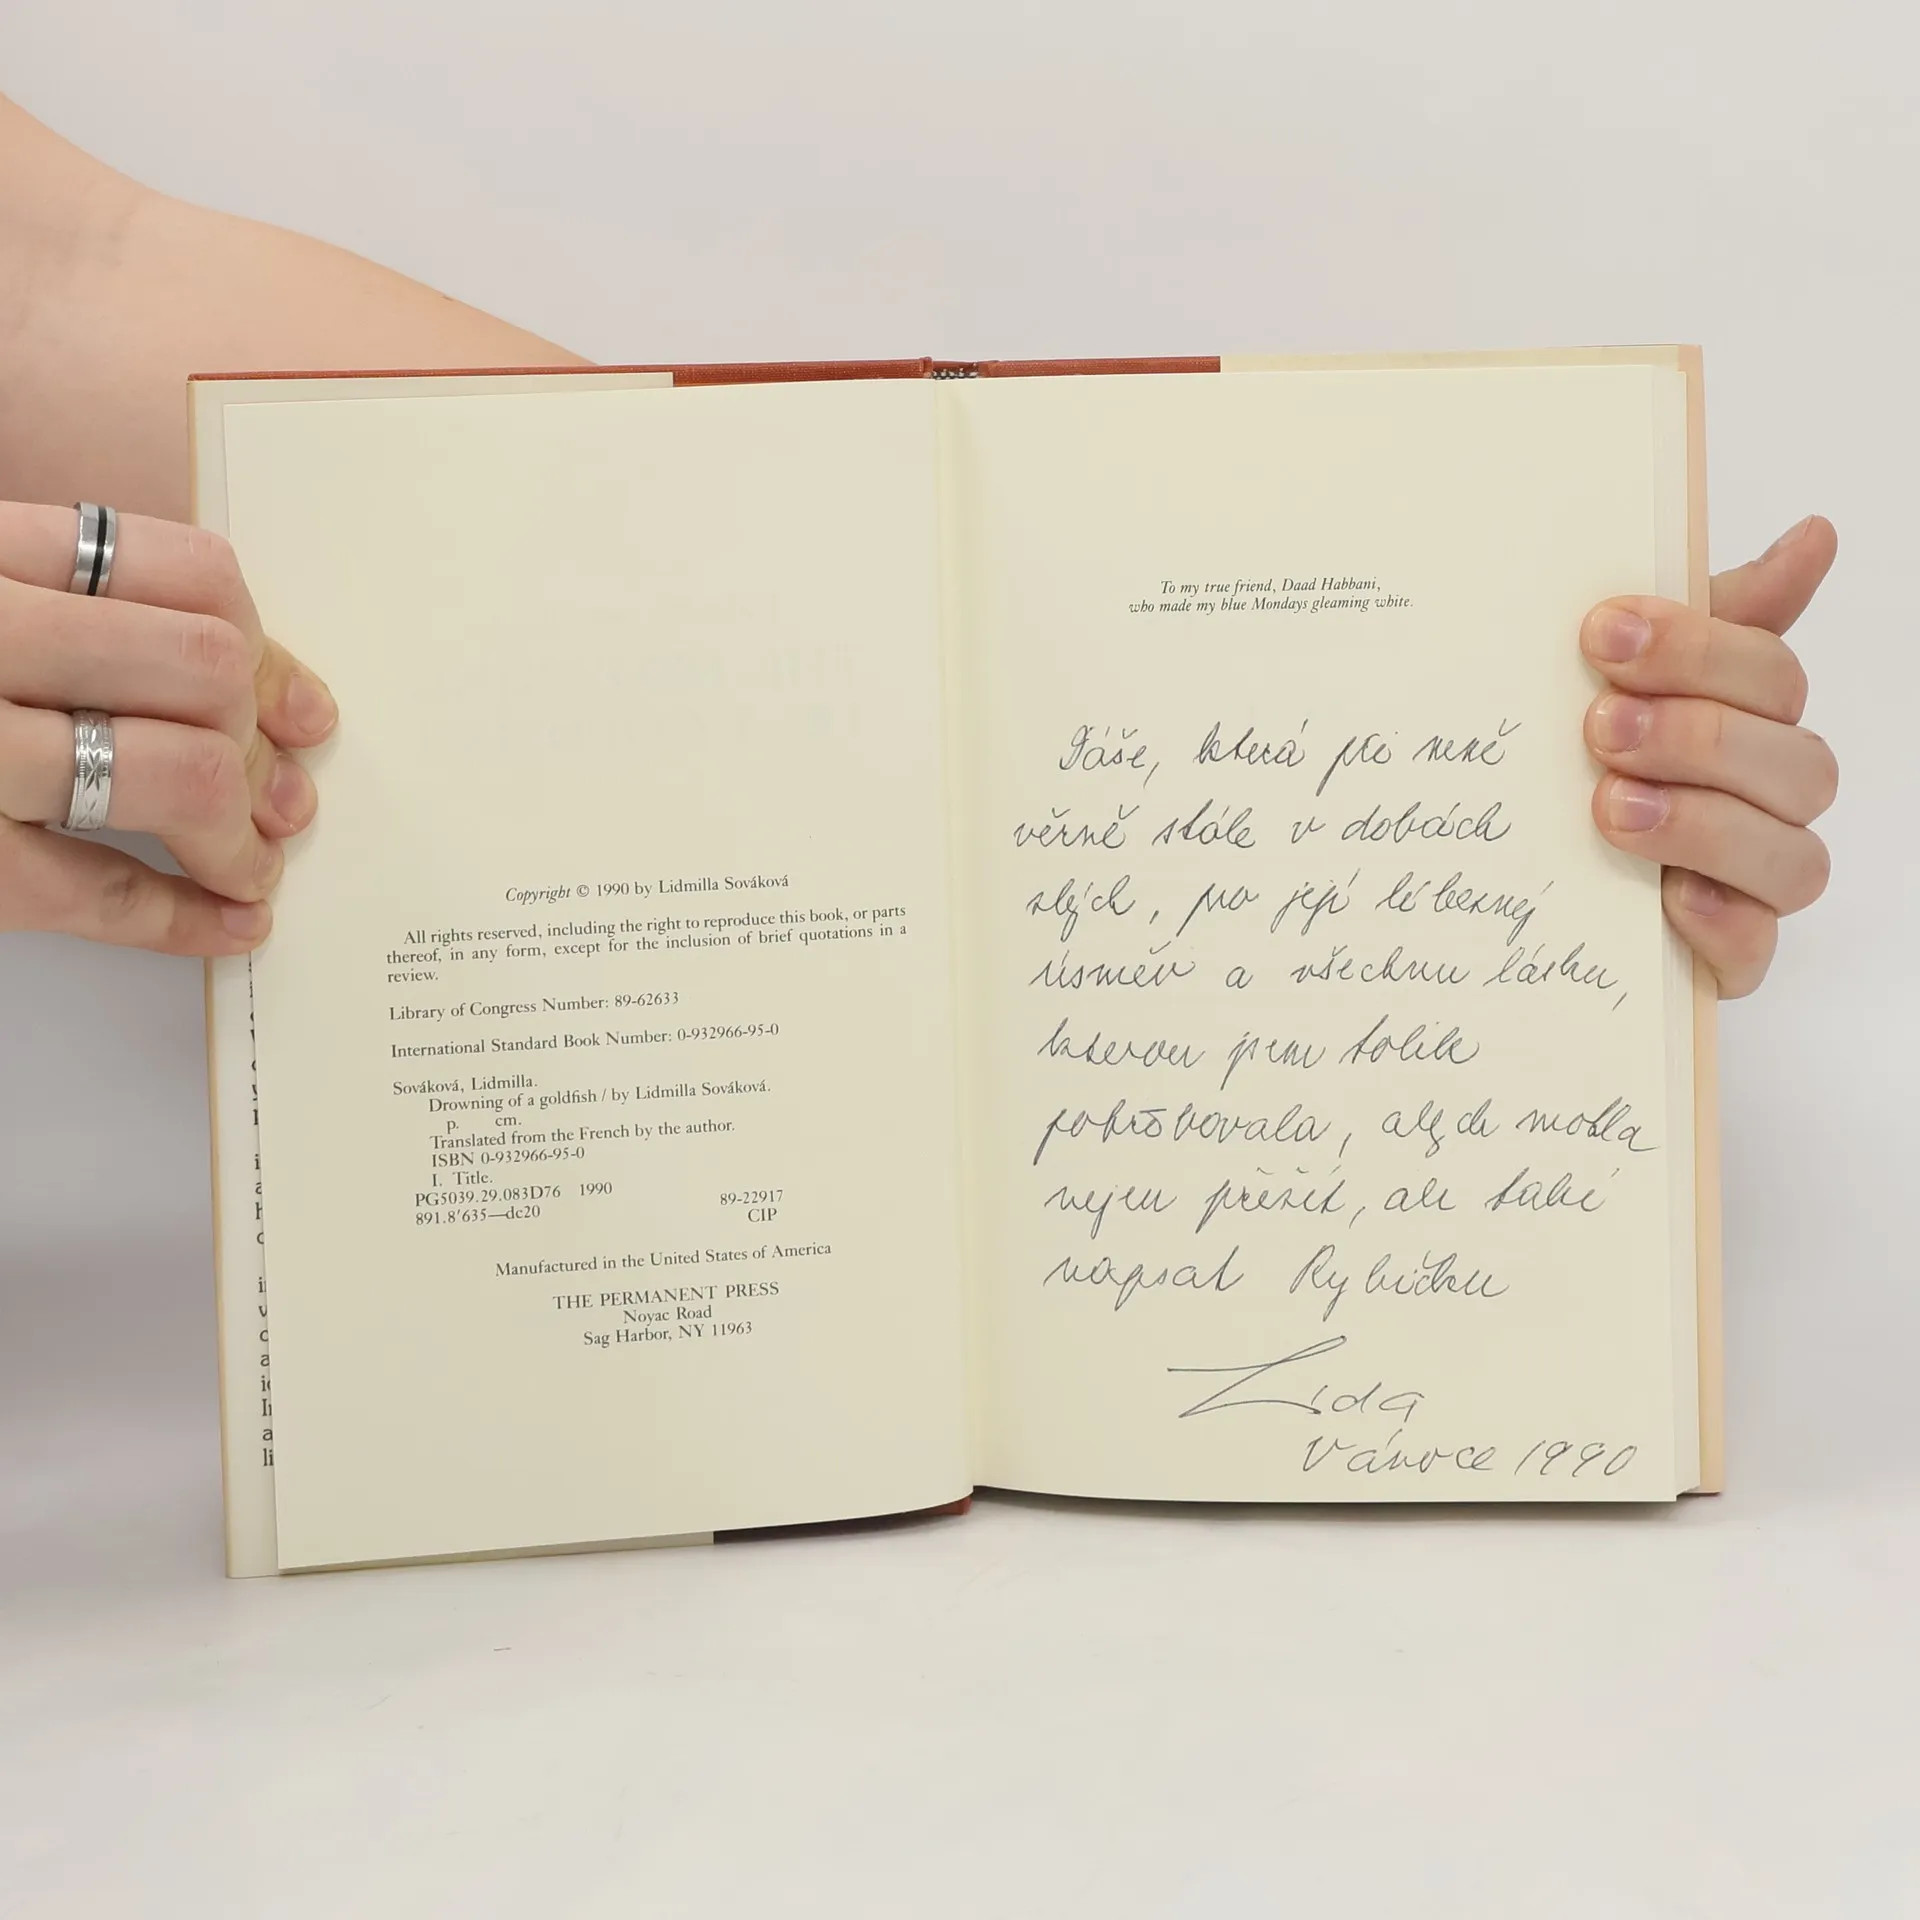 Copyright © 1990 by Lidmilla Sováková
All rights reserved, including the right to reproduce this book, or parts
thereof, in any form, except for the inclusion of brief quotations in a
review.
Library of Congress Number: 89-62633
International Standard Book Number: 0-932966-95-0
Sováková, Lidmilla.
Drowning of a goldfish / by Lidmilla Sováková.
p. cm.
Translated from the French by the author.
ISBN 0-932966-95-0
I. Title.
PG5039.29.083D76 1990 89-22917
891.8'635—dc20 CIP
Manufactured in the United States of America
THE PERMANENT PRESS
Noyac Road
Sag Harbor, NY 11963
To my true friend, Daad Habbani,
who made my blue Mondays gleaming white.
která při mně
věrně stála v dobách
zlých, pro její líbezný
úsměv a všechnu lásku,
kterou jsem tolik
potřebovala, abych mohla
nejen přežít, ale také
napsat Rybičku
Lida
Vánoce 1990